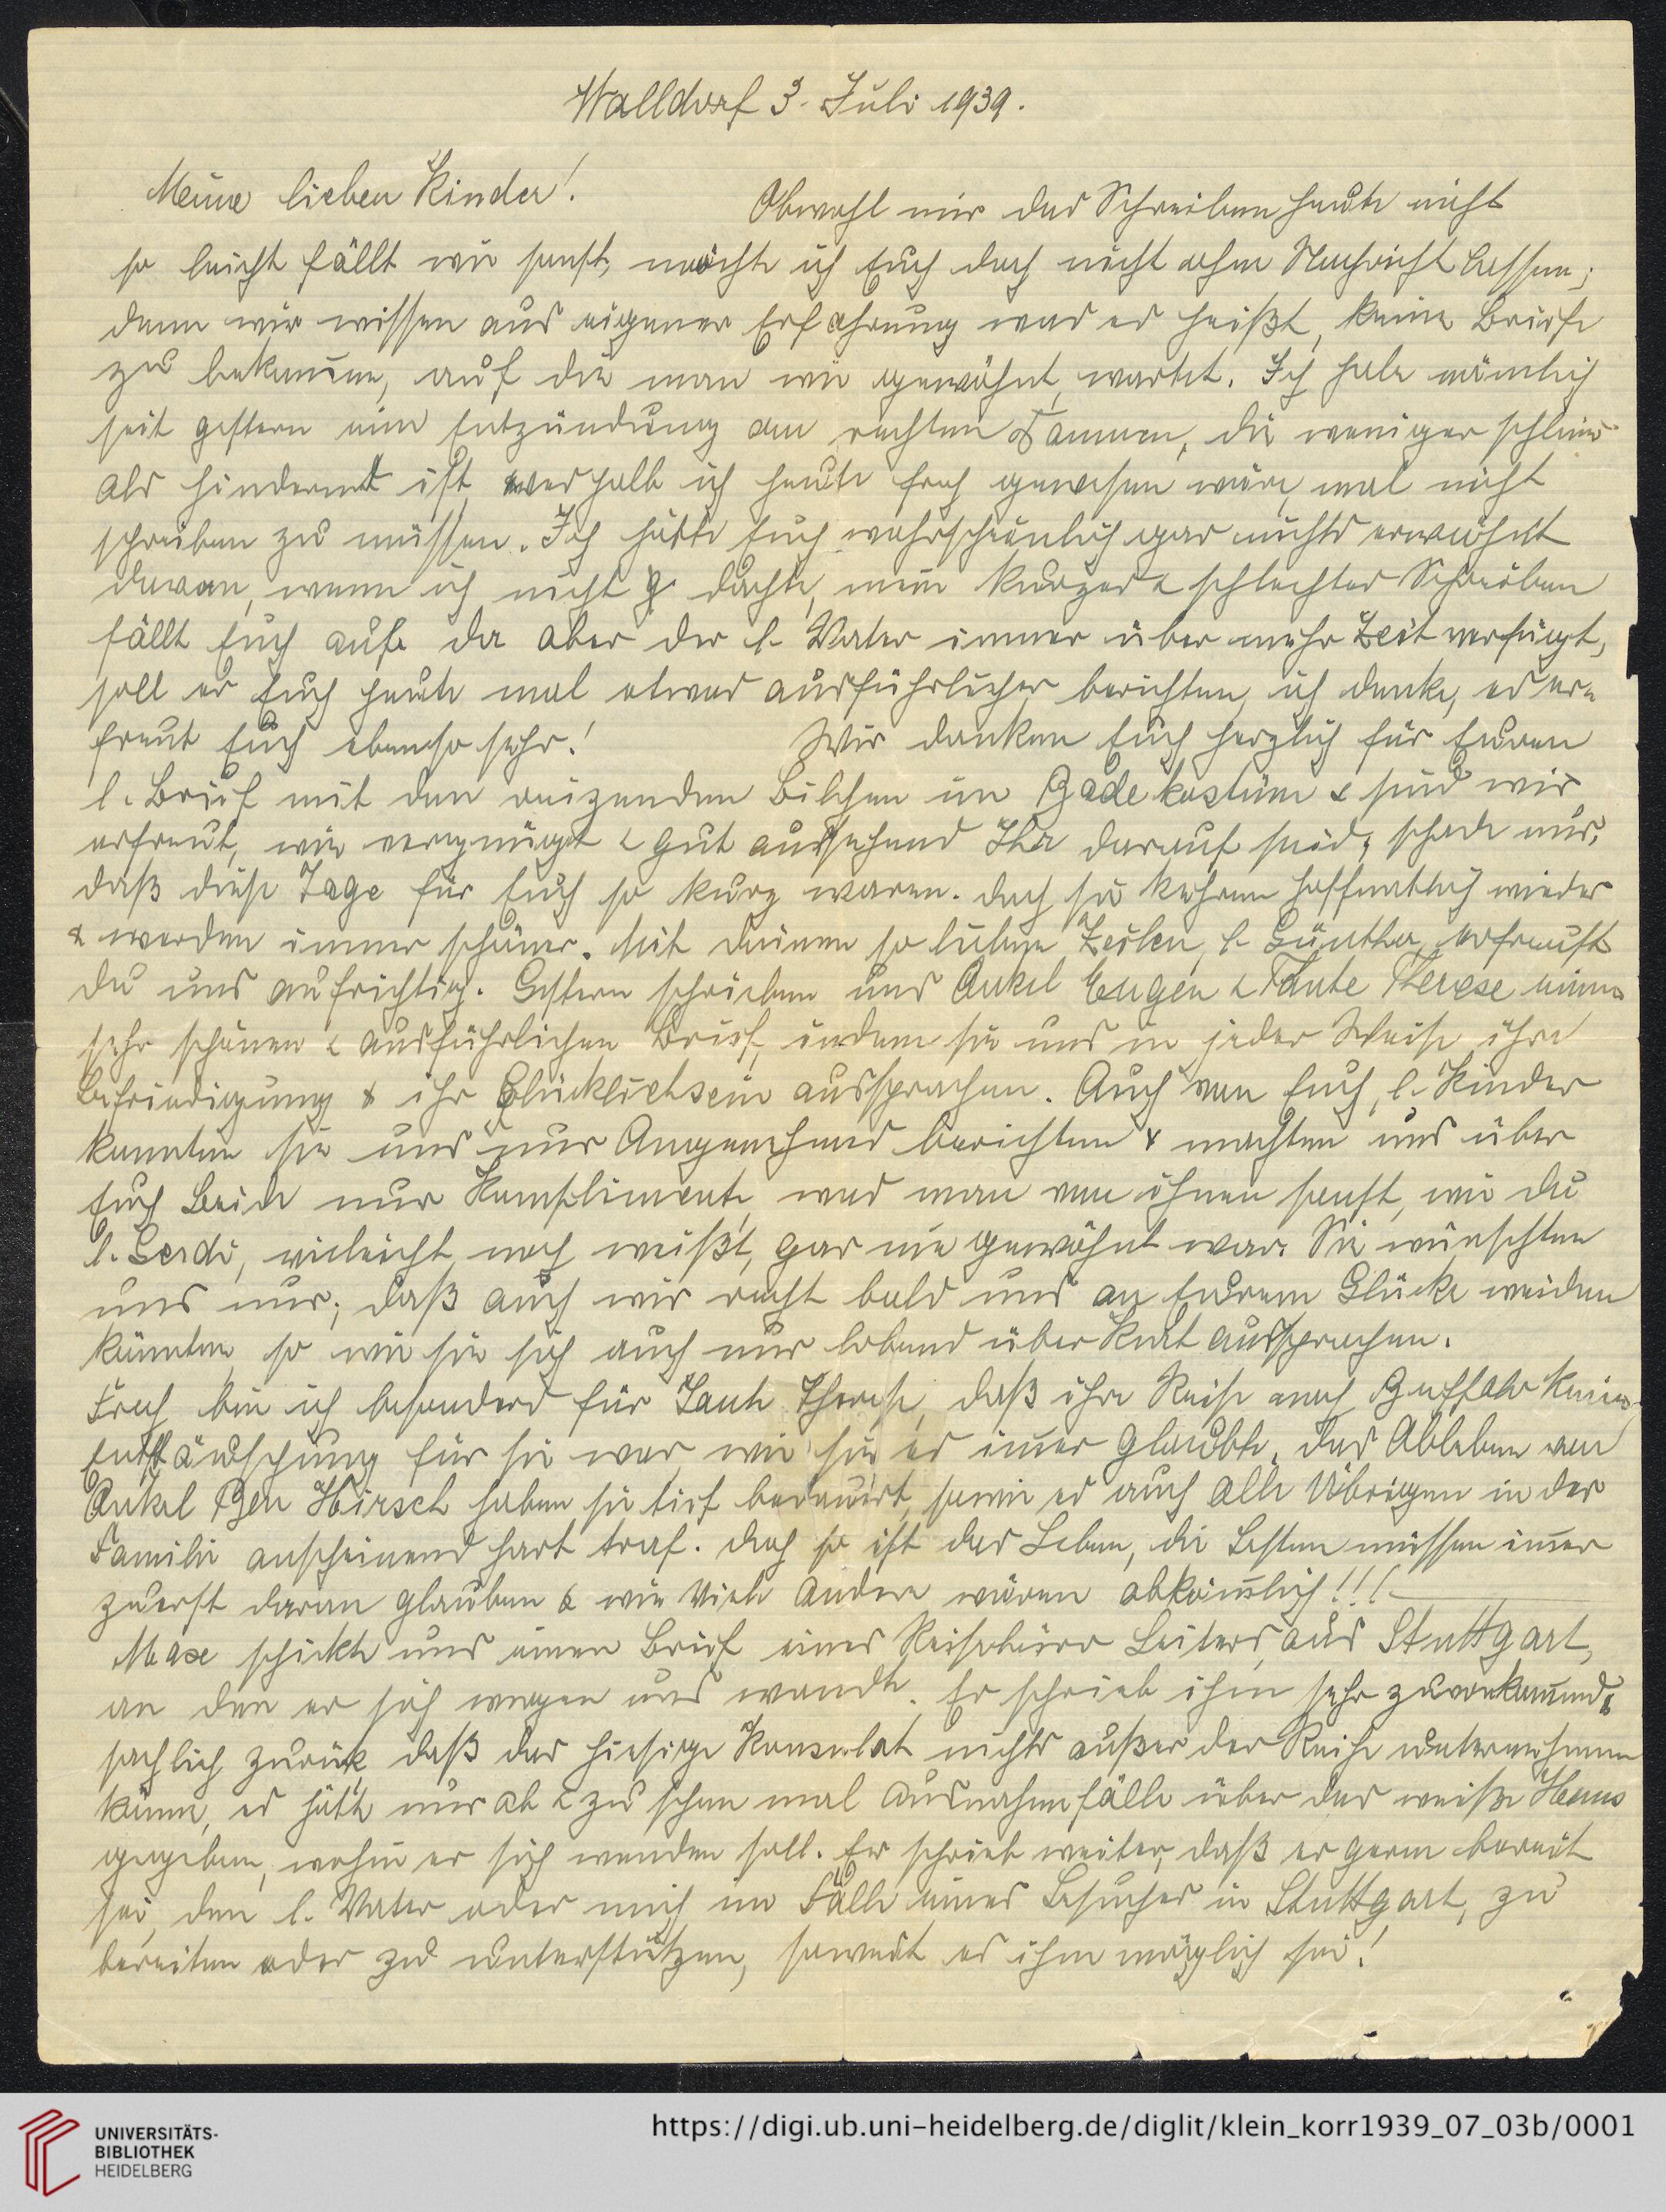 Walldorf 3. Juli 1939.
Meine lieben Kinder!
Obwohl mir das Schreiben heute nicht
so leicht fällt wie sonst, möchte ich Euch doch nicht ohne Nachricht lassen;
denn wir wissen aus eigener Erfahrung was es heißt, keine Briefe
zu bekommen, auf die man wie gewöhnt, wartet. Ich habe nämlich
seit gestern eine Entzündung am rechten Daumen, die weniger schlimm
als hindernd ist, weshalb ich heute froh gewesen wäre, mal nicht
schreiben zu müssen. Ich hätte Euch wahrscheinlich gar nichts erwähnt
davon, wenn ich nicht dächte, mein kurzes & schlechtes Schreiben
fällt Euch auf. da aber der l. Vater immer über mehr Zeit verfügt,
soll er Euch heute mal etwas ausführlicher berichten, ich denke, es er-
freut Euch ebenso sehr!
Wir danken Euch herzlich für Euren
l. Brief mit den reizenden Bildchen im Badekostüm & sind wir
erfreut, wie vergnügt & gut aussehend Ihr darauf seid, schade nur,
daß diese Tage für Euch so kurz waren. doch sie kehren hoffentlich wieder
& werden immer schöner. Mit deinen so lieben Zeilen, l. Günther, erfreust
du uns aufrichtig. Gestern schrieben uns Onkel Eugen & Tante Therese einen
sehr schönen & ausführlichen Brief, indem sie uns in jeder Weise ihre
Befriedigung & ihr Glücklichsein aussprachen. Auch von Euch, l. Kinder
konnten sie uns nur Angenehmes berichten & machten uns über
Euch Beide nur Komplimente, was man von ihnen sonst, wie du
l. Gerdi, vieleicht noch weißt, gar nie gewöhnt war. Sie wünschten
uns nur, daß auch wir recht bald uns an Eurem Glücke weiden
könnten, so wie sie sich auch nur lobend über Kurt aussprachen.
Froh bin ich besonders für Tante Therese, daß ihre Reise nach Buffalo keine
Enttäuschung für sie war, wie sie es immer glaubte. Das Ableben von
Onkel Ben Hirsch haben sie tief bedauert, sowie es auch alle Übrigen in der
Familie anscheinend hart traf. doch so ist das Leben, die Besten müssen immer
zuerst daran glauben & wie viele Andere wären abkömmlich!!!
Max schickte uns einen Brief eines Reisebüro Leiters, aus Stuttgart,
an den er sich wegen uns wandte. Er schrieb ihm sehr zuvorkommend &
sachlich zurück, daß das hiesige Konsulat nichts außer der Reihe unternehmen
könne, es hätte nur ab & zu schon mal Ausnahmefälle über das weiße Haus
gegeben, wohin er sich wenden soll. Er schrieb weiter, daß er gerne bereit
sei, den l. Vater oder mich im Falle eines Besuches in Stuttgart, zu
beraten oder zu unterstützen, soweit es ihm möglich sei!
UNIVERSITÄTS-
BIBLIOTHEK
HEIDELBERG
https://digi.ub.uni-heidelberg.de/diglit/klein_korr1939_07_03b/0001